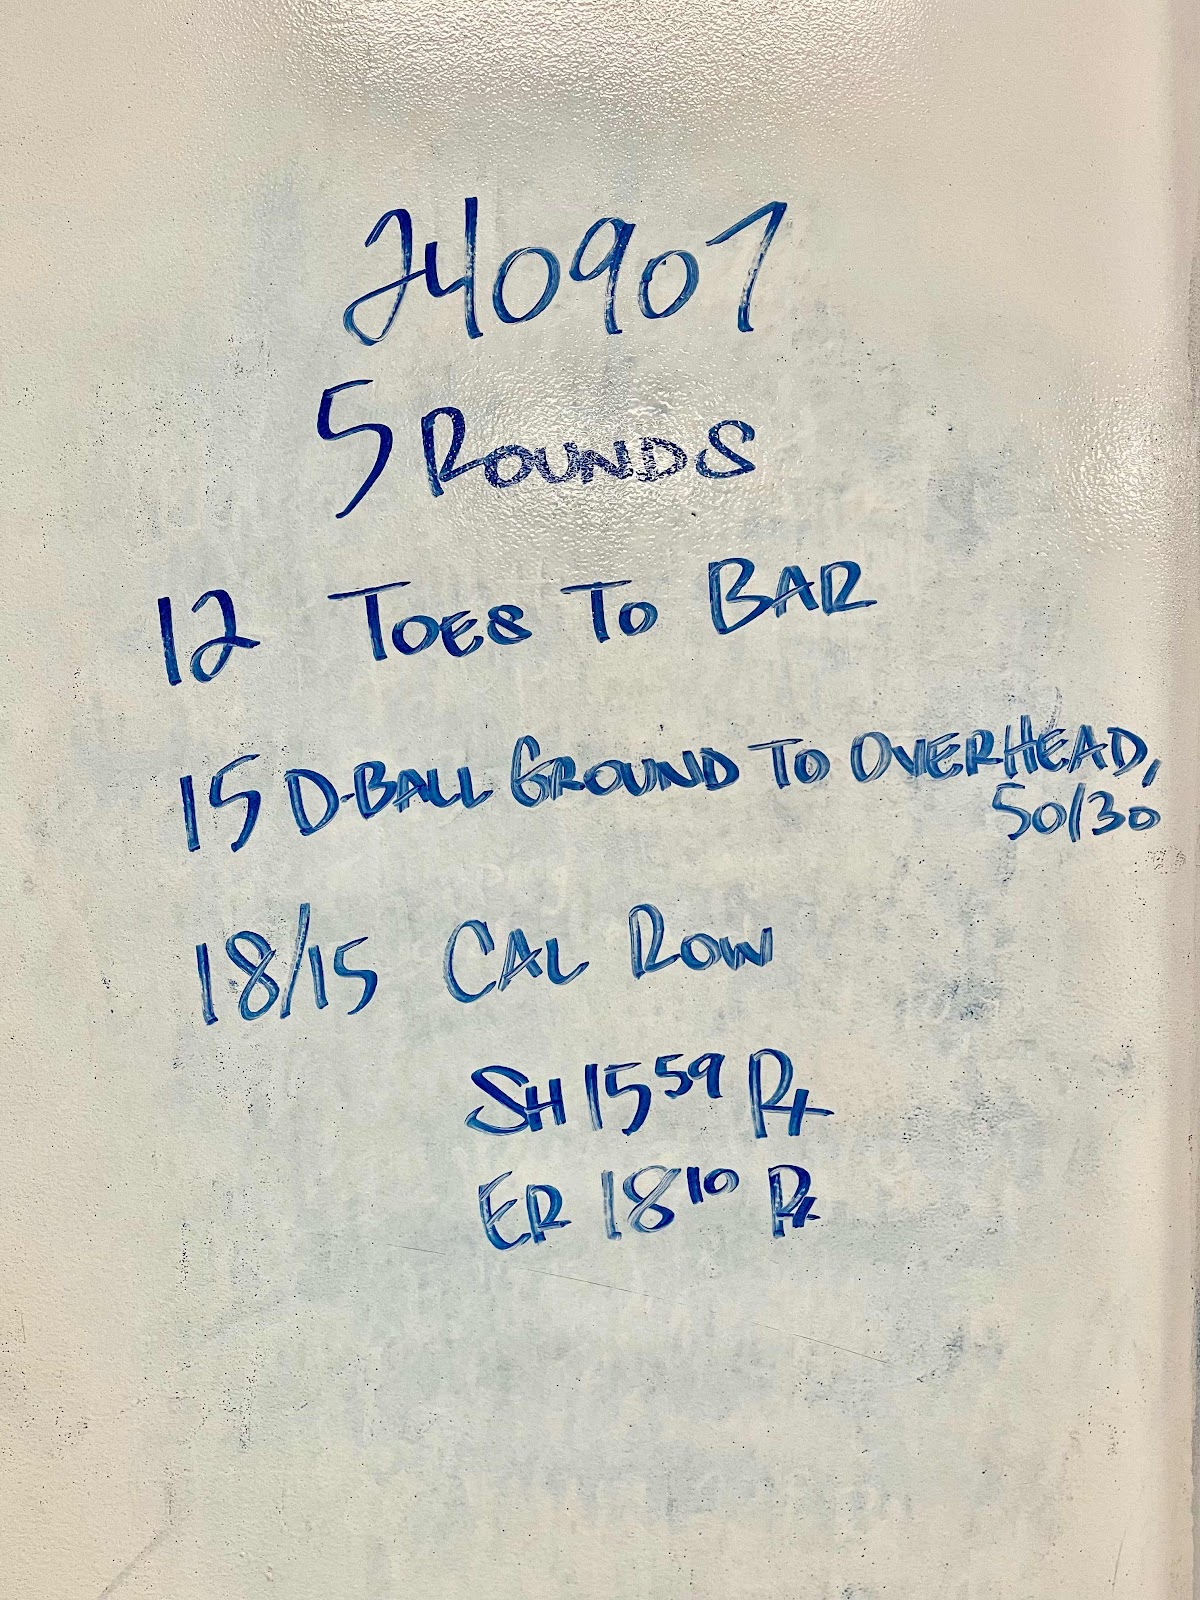 240907
5 ROUNDS
12 TOES TO BAR
15 D-BALL GROUND TO OVERHEAD,
50/30
18/15 CAL ROW
SH 15 59 Rx
ER 18 10 Rx